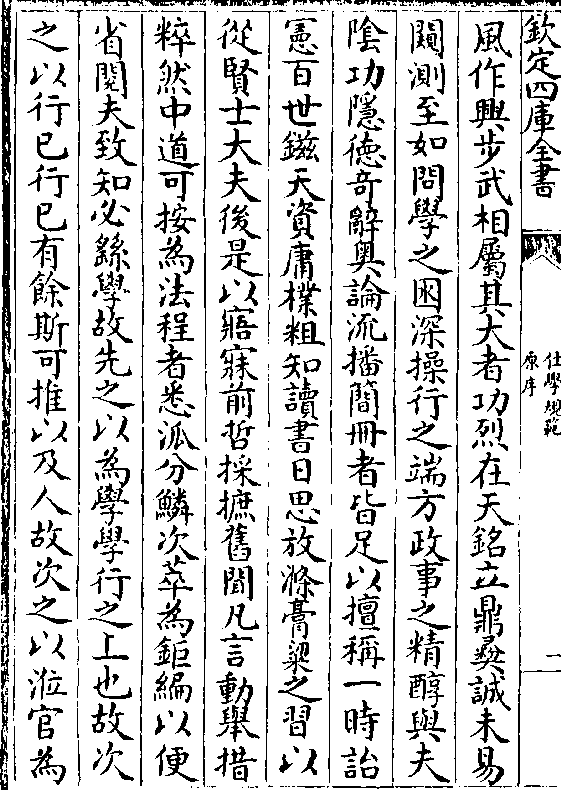 欽定四庫全書
仕學規範
原序
二
風作興步武相屬其大者功烈在天銘立鼎彛誠未易
闚測至如問學之困深操行之端方政事之精醇與夫
陰功隱徳竒辭奥論流播簡冊者皆足以擅稱一時詒
憲百世鎡天資庸樸粗知讀書日思放滌膏粱之習以
從賢士大夫後是以寤寐前哲採摭舊聞凡言動舉措
粹然中道可按為法程者悉派分鱗次萃為鉅編以便
省閱夫致知必繇學故先之以為學學行之上也故次
之以行已行已有餘斯可推以及人故次之以涖官為